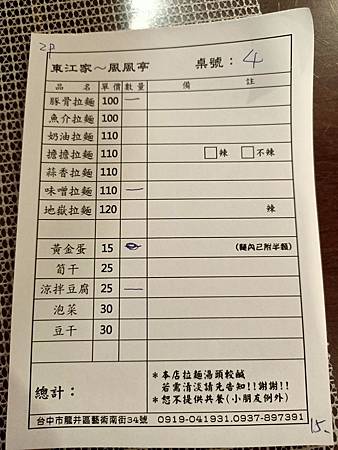 2P
東江家～風風亭 桌號： 4
品 名 單價 數量 備 註
豚骨拉麵 100 一
魚介拉麵 100
奶油拉麵 110
擔擔拉麵 110 □辣 □不辣
蒜香拉麵 110
味噌拉麵 110 一
地獄拉麵 120 辣
黃金蛋 15 (麵內已附半顆)
筍干 25
涼拌豆腐 25 一
泡菜 30
豆干 30
總計：
*本店拉麵湯頭較鹹
若需清淡請先告知!!謝謝!!
*恕不提供共餐(小朋友例外)
台中市龍井區藝術南街34號 0919-041931.0937-897391
15.-